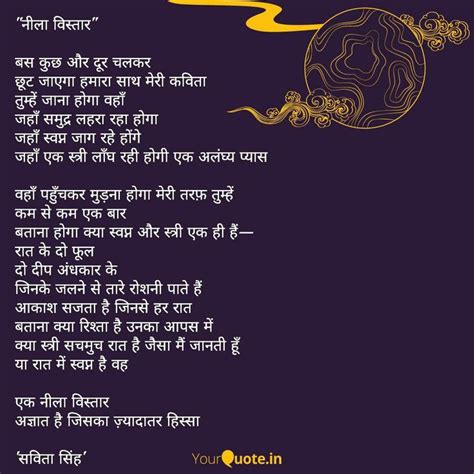 "नीला विस्तार"
बस कुछ और दूर चलकर
छूट जाएगा हमारा साथ मेरी कविता
तुम्हें जाना होगा वहाँ
जहाँ समुद्र लहरा रहा होगा
जहाँ स्वप्न जाग रहे होंगे
जहाँ एक स्त्री लाँघ रही होगी एक अलंघ्य प्यास
वहाँ पहुँचकर मुड़ना होगा मेरी तरफ़ तुम्हें
कम से कम एक बार
बताना होगा क्या स्वप्न और स्त्री एक ही हैं—
रात के दो फूल
दो दीप अंधकार के
जिनके जलने से तारे रोशनी पाते हैं
आकाश सजता है जिनसे हर रात
बताना क्या रिश्ता है उनका आपस में
क्या स्त्री सचमुच रात है जैसा मैं जानती हूँ
या रात में स्वप्न है वह
एक नीला विस्तार
अज्ञात है जिसका ज़्यादातर हिस्सा
'सविता सिंह'
YourQuote.in